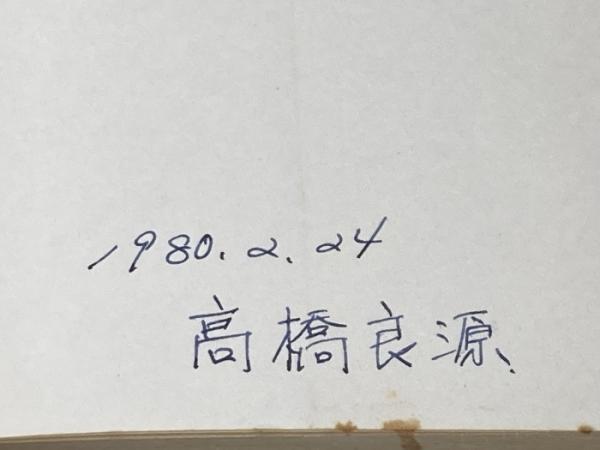 1980.2.24
高橋良源、